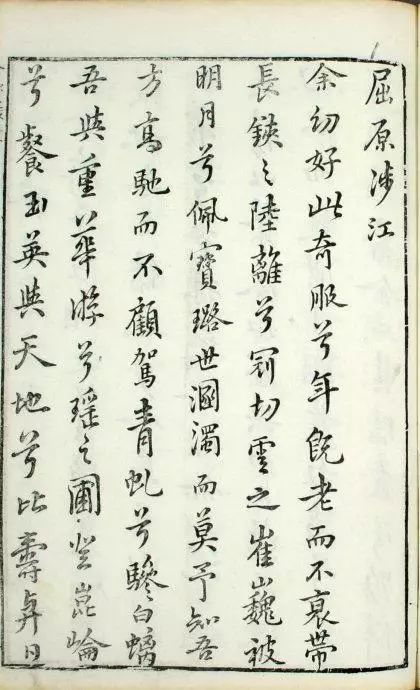 屈原涉江
余幼好此奇服兮年既老而不衰帶
長鋏之陸離兮冠切雲之崔巍被
明月兮佩寶璐世溷濁而莫予知吾
方高馳而不顧駕青虬兮驂白螭
吾與重華游兮瑤之圃登崑崙
兮餐玉英與天地兮比壽與日